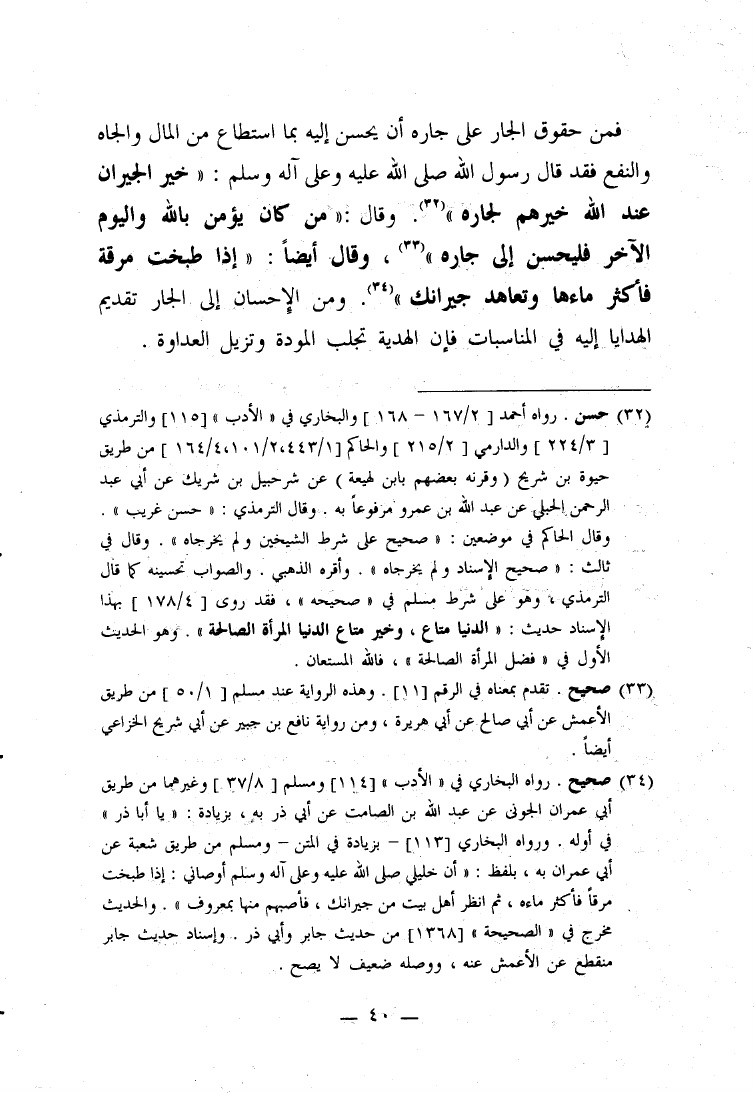 فمن حقوق الجار على جاره أن يحسن إليه بما استطاع من المال والجاه
والنفع فقد قال رسول الله صلى الله عليه وعلى آله وسلم : « خير الجيران
عند الله خيرهم لجاره »(٣٢). وقال :« من كان يؤمن بالله واليوم
الآخر فليحسن إلى جاره »(٣٣) ، وقال أيضاً : « إذا طبخت مرقة
فأكثر ماءها وتعاهد جيرانك »(٣٤). ومن الإحسان إلى الجار تقديم
الهدايا إليه في المناسبات فإن الهدية تجلب المودة وتزيل العداوة .
(٣٢) حسن . رواه أحمد [ ١٦٧/٢ – ١٦٨ ] والبخاري في « الأدب » [١١٥] والترمذي
[ ٢٢٤/٣ ] والدارمي [ ٢١٥/٢ ] والحاكم [١٦٤/٤،١٠١/٢،٤٤٣/١ ] من طريق
حيوة بن شريح ( وقرنه بعضهم بابن لهيعة ) عن شرحبيل بن شريك عن أبي عبد
الرحمن الحبلي عن عبد الله بن عمرو مرفوعاً به . وقال الترمذي : « حسن غريب » .
وقال الحاكم في موضعين : « صحيح على شرط الشيخين ولم يخرجاه » . وقال في
ثالث : « صحيح الإسناد ولم يخرجاه » . وأقره الذهبي . والصواب تحسينه كما قال
الترمذي ، وهو على شرط مسلم في « صحيحه » ، فقد روى [ ١٧٨/٤ ] بهذا
الإسناد حديث : « الدنيا متاع ، وخير متاع الدنيا المرأة الصالحة » . وهو الحديث
الأول في « فضل المرأة الصالحة » ، فالله المستعان .
(٣٣) صحيح . تقدم بمعناه في الرقم [١١] . وهذه الرواية عند مسلم [ ٥٠/١ ] من طريق
الأعمش عن أبي صالح عن أبي هريرة ، ومن رواية نافع بن جبير عن أبي شريح الخزاعي
أيضاً .
(٣٤) صحيح . رواه البخاري في « الأدب » [١١٤] ومسلم [ ٣٧/٨ ] وغيرهما من طريق
أبي عمران الجوني عن عبد الله بن الصامت عن أبي ذر به ، بزيادة : « يا أبا ذر »
في أوله . ورواه البخاري [١١٣] – بزيادة في المتن – ومسلم من طريق شعبة عن
أبي عمران به ، بلفظ : « أن خليلي صلى الله عليه وعلى آله وسلم أوصاني : إذا طبخت
مرقاً فأكثر ماءه ، ثم انظر أهل بيت من جيرانك ، فأصبهم منها بمعروف » . والحديث
مخرج في « الصحيحة » [١٣٦٨] من حديث جابر وأبي ذر . وإسناد حديث جابر
منقطع عن الأعمش عنه ، ووصله ضعيف لا يصح .
— ٤٠ —